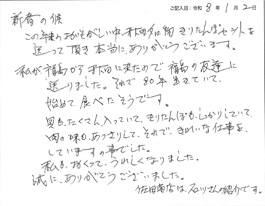 ご記入日：令和 8年 1月 2日
新春の候
この年末のおいそがしい中、秋田名物きりたんぽセットを
送って頂き本当に、ありがとうございます。
私が福島から秋田に来たので福島の友達に
送りました。それで80年生きていて、
始めて食べたそうです。
具もたくさん入っていて、きりたんぽもしっかりしていて
肉の味もあっさりして、それで、きれいな仕事を
していますの事でした。
私も、おくって、うれしくなりました。
誠に、ありがとうございました。
佐田商店は、石川さんの紹介です。